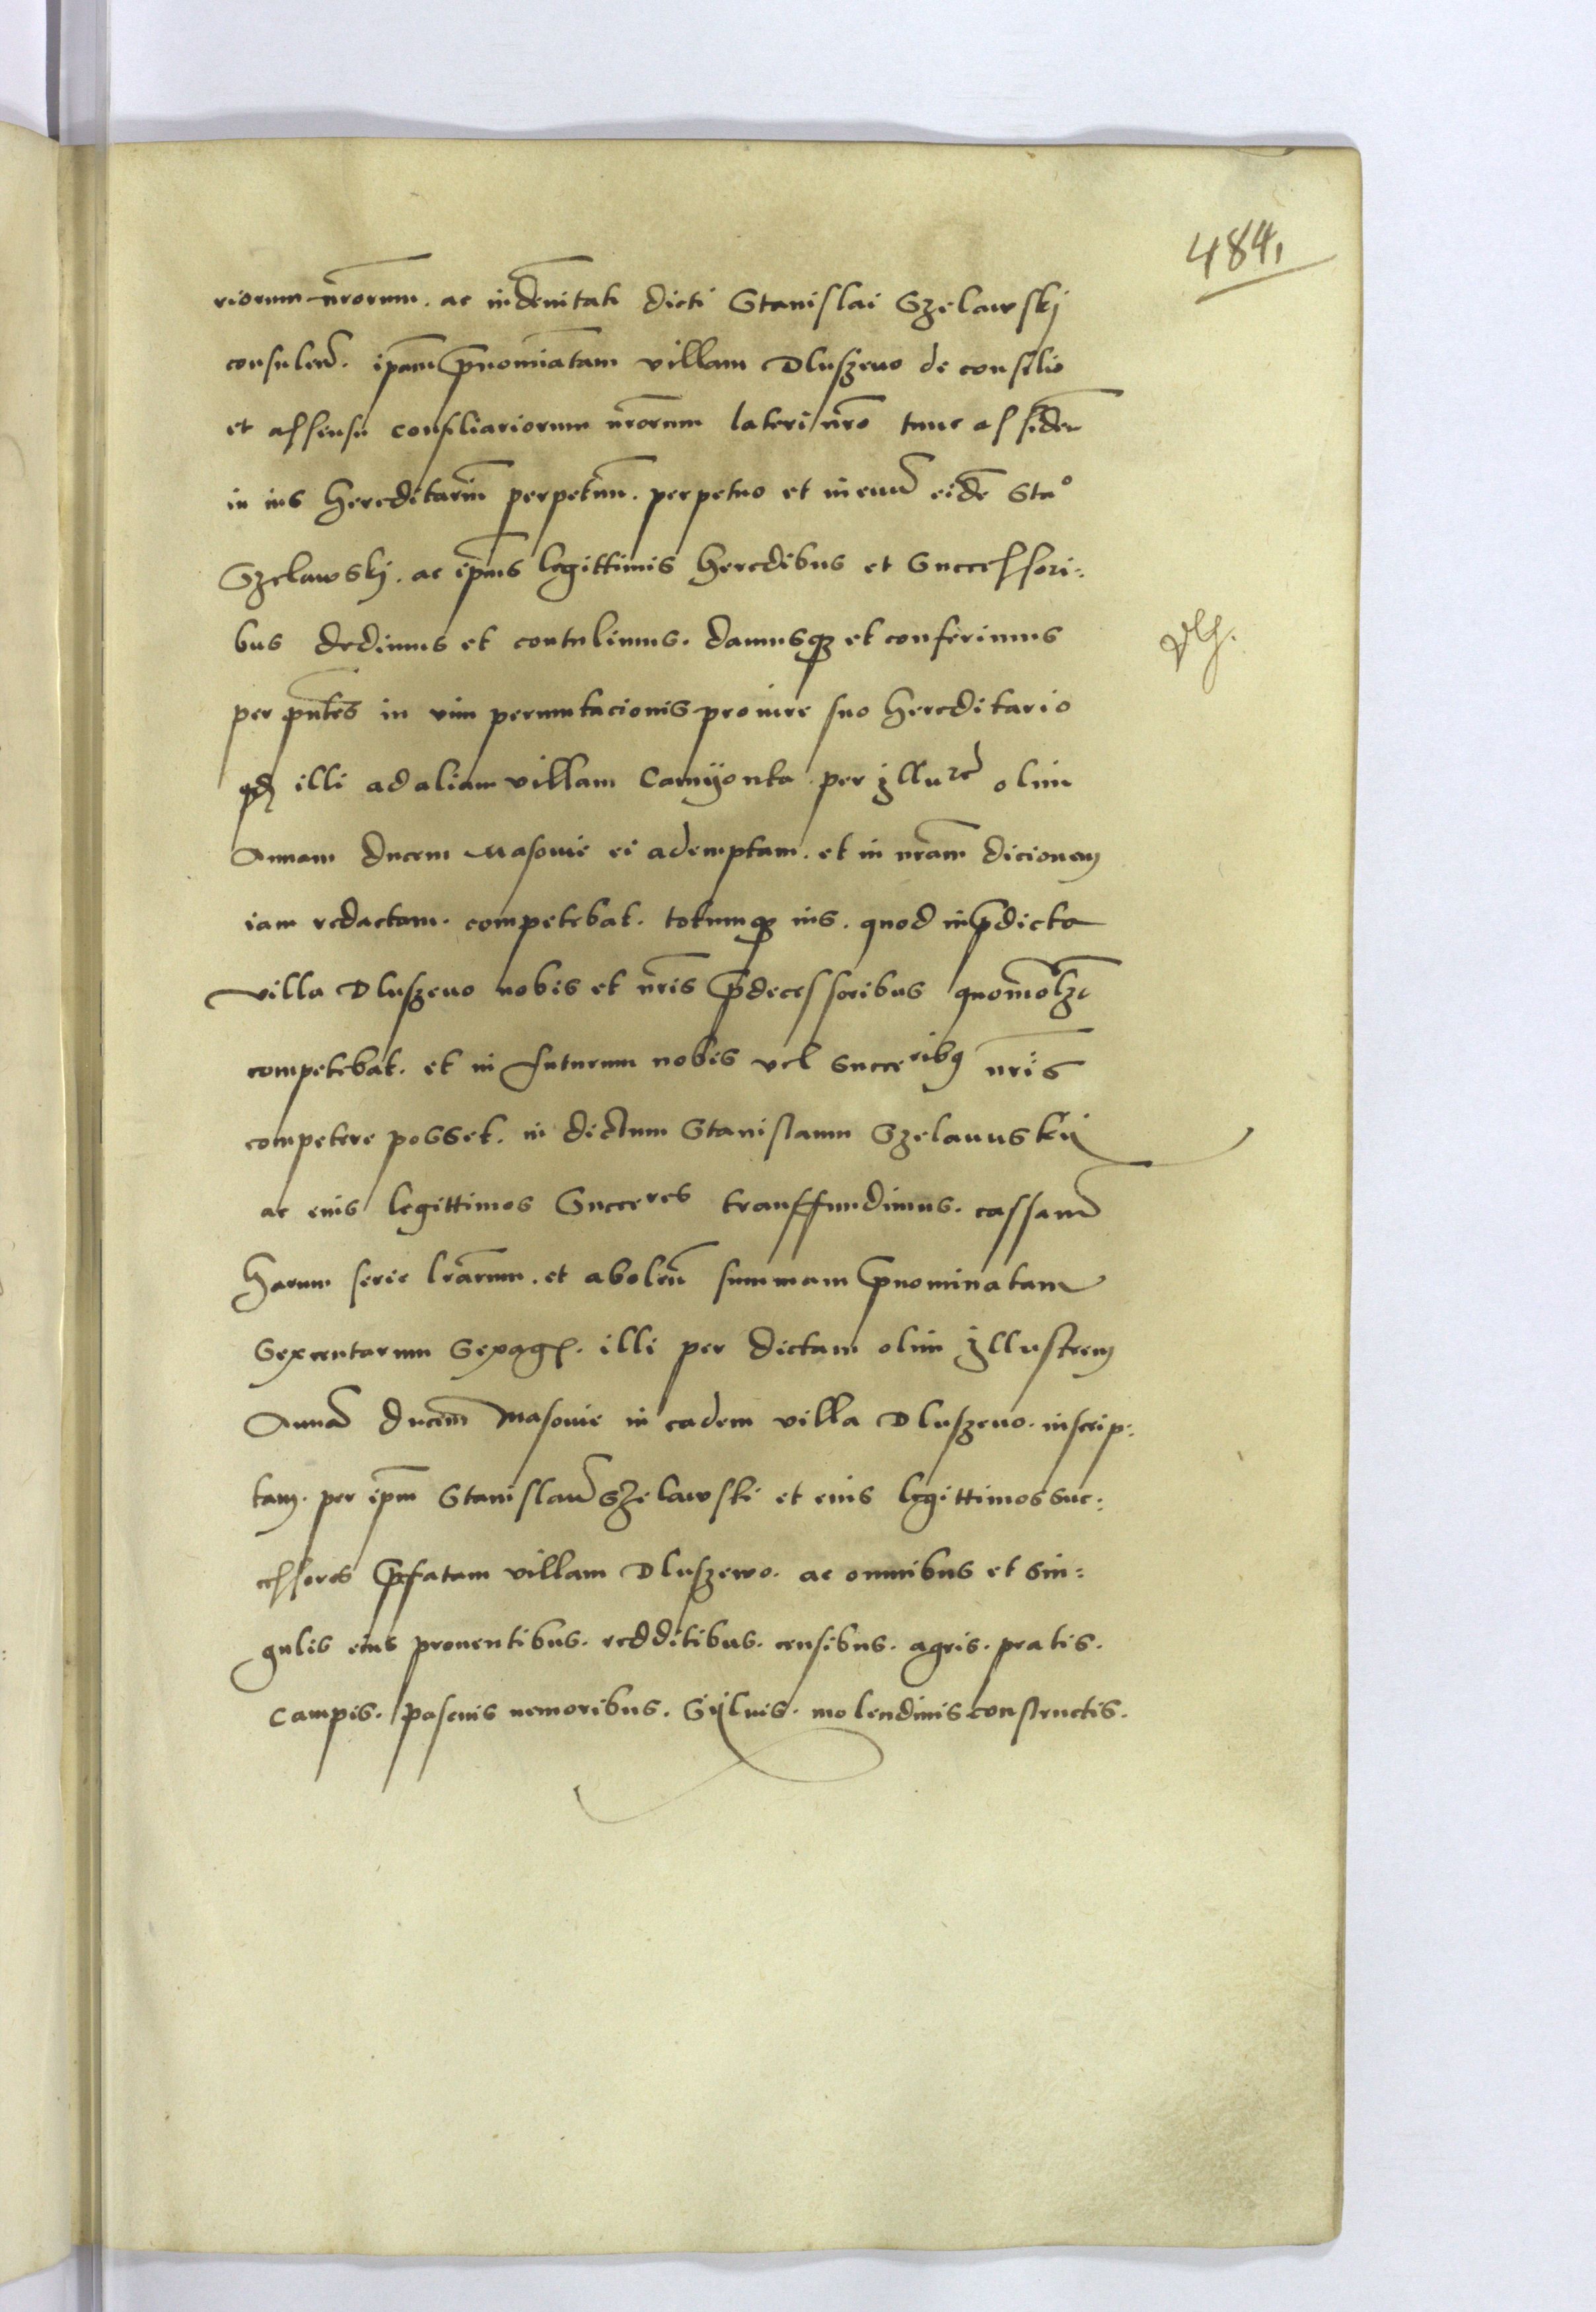 484
riorum nrorum. ac indenitati dicti Stanislai Szelawskj
consulend. ipam pnominatam villam Dluszeuo de consilio
et assensu consiliariorum nrorum lateri nro tunc assiden
in ius hereditarium perpetuum. perpetuo et in euum eidem Stao
Szelawskj. ac ipius legittimis heredibus et Successori:
bus dedimus et contulimus. damusqz et conferimus
per pntes in vim permutacionis pro iure suo hereditario
qd illi ad aliam villam Camyonka per Illurem olim
Annam ducem Masouie ei ademptam. et in nram dicionem
iam redactam. competebat. totumqz ius. quod in pdicta
villa Dluszeuo nobis et nris pdecessoribus quomolz
competebat. et in futurum nobis vel Succeribus nris
competere posset. in dictum Stanislaum Szelauuskij
ac eius legittimos Succeres transffundimus. cassand
harum serie lrarum. et abolen summam pnominatam
Sexcentarum Sexag. illi per dictam olim Illustrem
Annam ducem Masouie in eadem villa Dluszeuo. inscrip:
tam. per ipm Stanislaum Szelawski et eius legittimos suc:
cessores pfatam villam Dluszewo. ac omnibus et sin:
gulis eius prouentibus. redditibus. censibus. agris. pratis.
Campis. pascuis nemoribus. Sijluis. molendinis constructis.